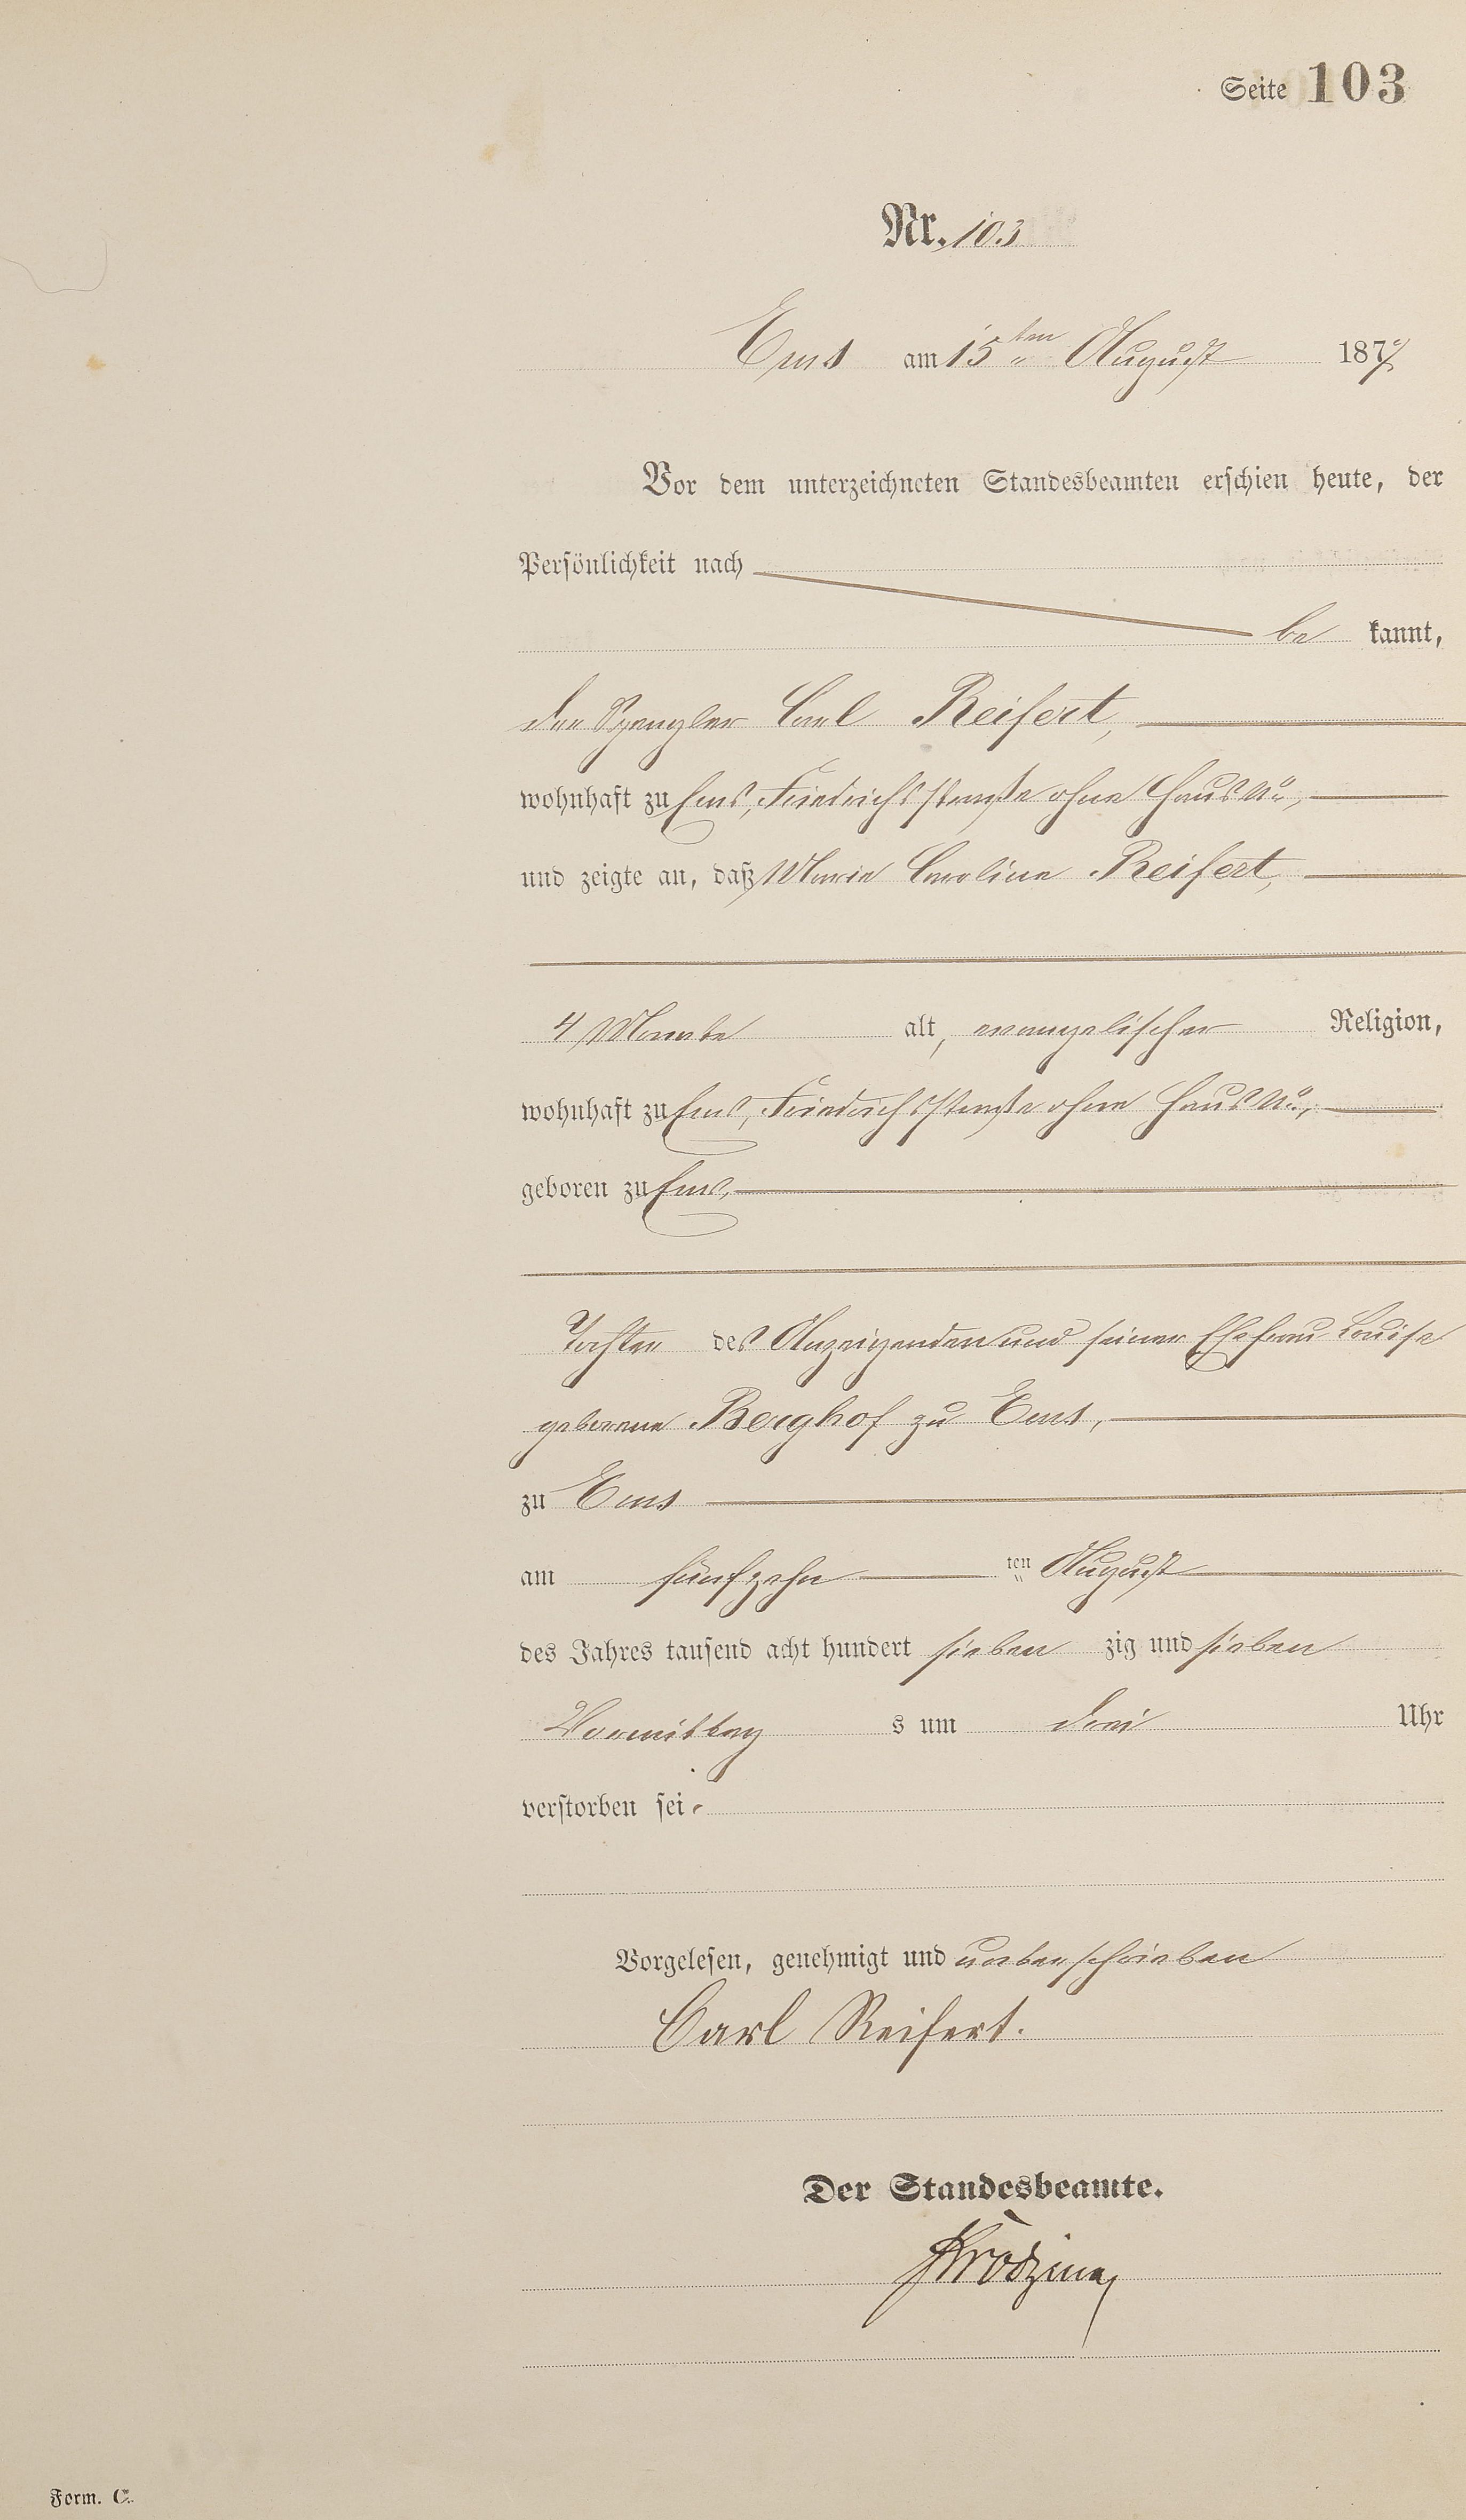 Seite 103
Nr. 103
Ems am 15ten August 1877
Vor dem unterzeichneten Standesbeamten erschien heute, der
Persönlichkeit nach
be kannt,
der Spengler Carl Reifert,
wohnhaft zu Ems, Friedrichsstraße ohne Haus No,
und zeigte an, daß Marie Caroline Reifert,
4 Monate alt, evangelischer Religion,
wohnhaft zu Ems, Friedrichsstraße ohne Haus No,
geboren zu Ems,
Tochter des Anzeigenden und seiner Ehefrau Louise
geborene Berghof zu Ems,
zu Ems
am fünfzehn ten August
des Jahres tausend acht hundert sieben zig und sieben
Vormittag s um drei Uhr
verstorben sei.
Vorgelesen, genehmigt und unterschrieben
Carl Reifert.
Der Standesbeamte.
Form. C.